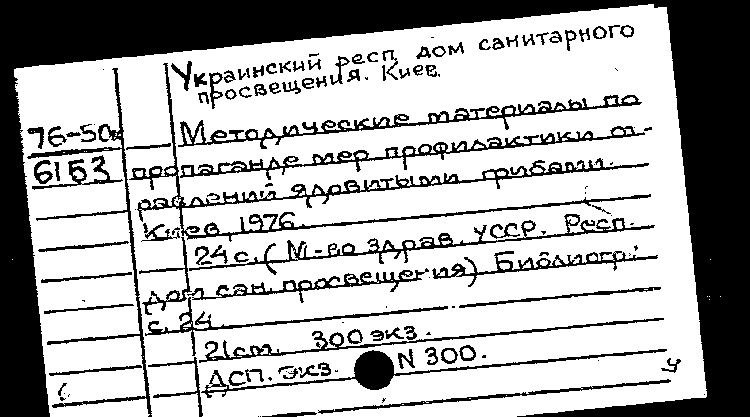 Украинский респ. дом санитарного
просвещения. Киев.
76-50к
6153
Методические материалы по
пропаганде мер профилактики от-
равлений ядовитыми грибами.
Киев, 1976.
24 с. (М-во здрав. УССР. Респ.
дом сан. просвещения) Библиогр.:
с. 24.
21 см. 300 экз.
ДСП. экз. N 300.